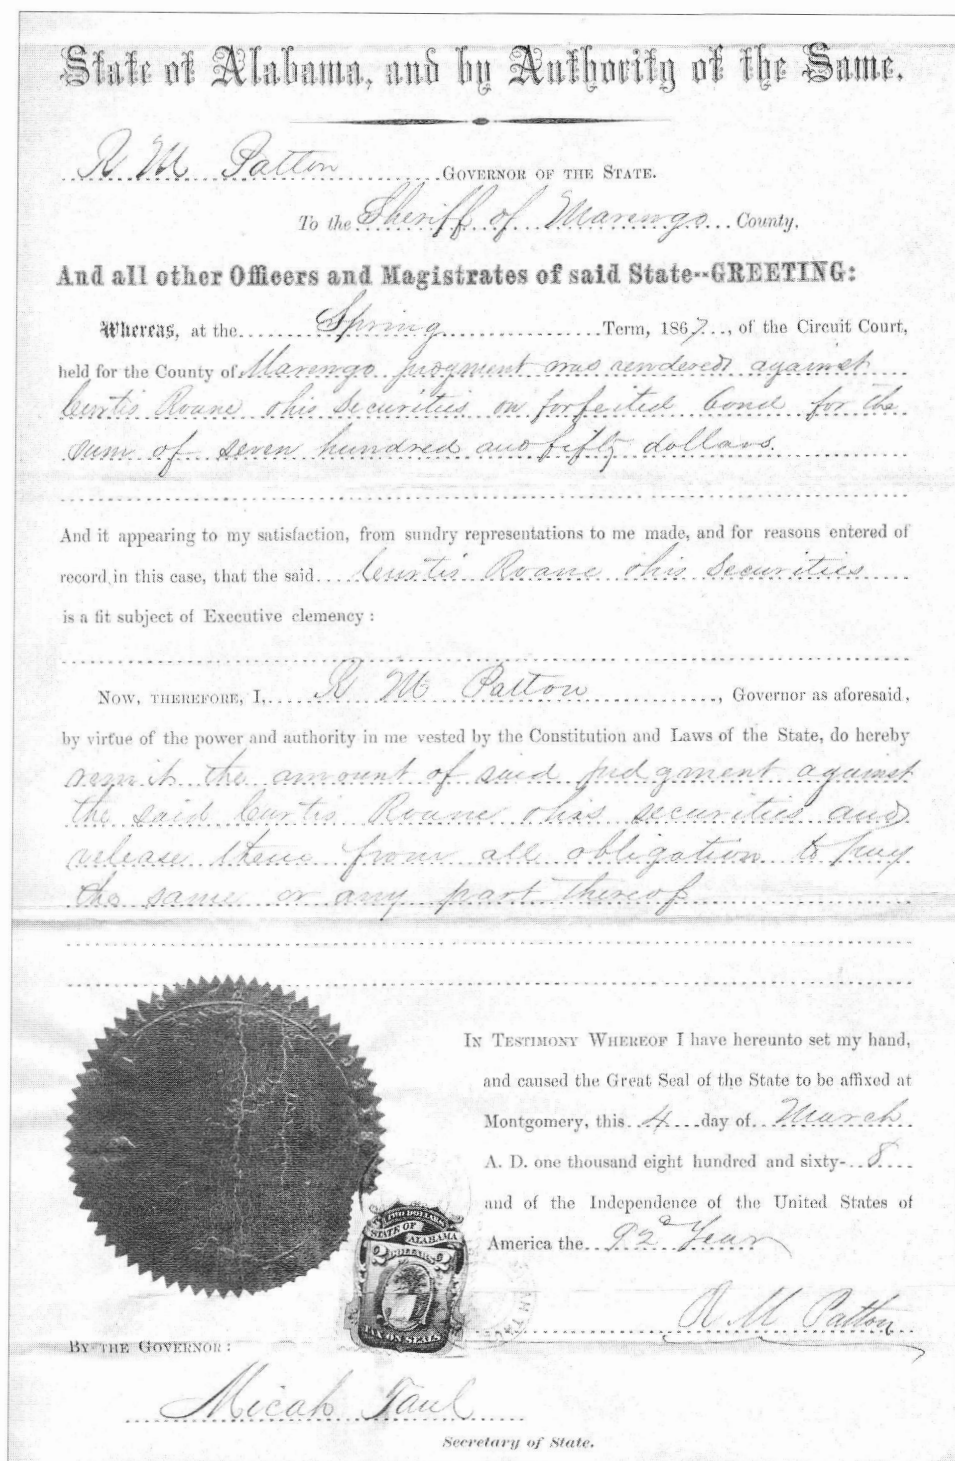 State of Alabama, and by Authority of the Same.
R M Patton GOVERNOR OF THE STATE.
To the Sheriff of Marengo County.
And all other Officers and Magistrates of said State--GREETING:
Whereas, at the Spring Term, 1867, of the Circuit Court,
held for the County of Marengo judgment was rendered against
Curtis Roane & his Securities on forfeited bond for the
sum of seven hundred and fifty dollars.
And it appearing to my satisfaction, from sundry representations to me made, and for reasons entered of
record in this case, that the said Curtis Roane & his Securities
is a fit subject of Executive clemency:
NOW, THEREFORE, I, R M Patton, Governor as aforesaid,
by virtue of the power and authority in me vested by the Constitution and Laws of the State, do hereby
remit the amount of said judgment against
the said Curtis Roane & his securities and
release them from all obligation to pay
the same or any part thereof
IN TESTIMONY WHEREOF I have hereunto set my hand,
and caused the Great Seal of the State to be affixed at
Montgomery, this 4 day of March
A. D. one thousand eight hundred and sixty-8
and of the Independence of the United States of
America the 92d Year
TWO DOLLARS
STATE OF
ALABAMA
2 DOLLARS 2
TAX ON SEALS
R M Patton
BY THE GOVERNOR:
Micah Taul
Secretary of State.